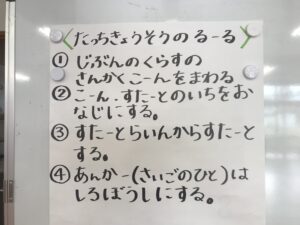 ＜たっちきょうそうのるーる＞
① じぶんのくらすの
さんかくこーんをまわる
② こーん．すたーとのいちをお
なじにする。
③ すたーとらいんからすたーと
する。
④ あんかー(さいごのひと)は
しろぼうしにする。